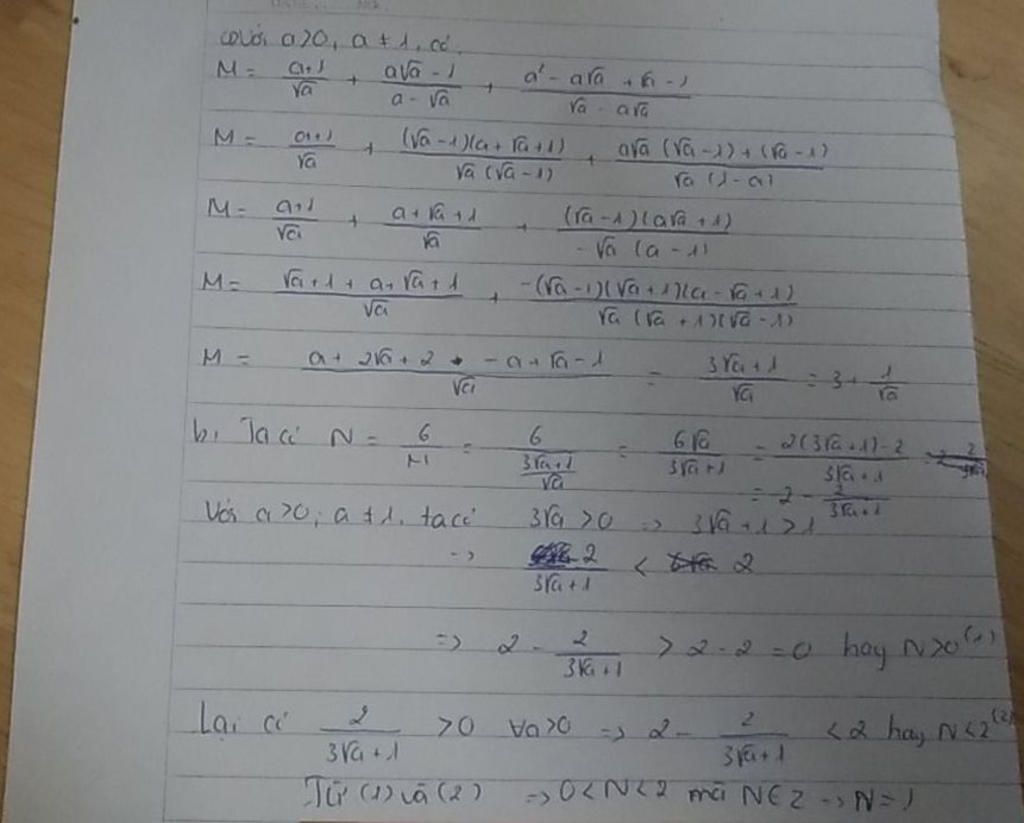 với a>0, a ≠ 1, có
M = (a+1)/√a + (a√a - 1)/(a - √a) + (a² - a√a + √a - 1)/(√a - a√a)
M = (a+1)/√a + ((√a-1)(a+√a+1))/(√a(√a-1)) + (a√a(√a-1)+(√a-1))/(√a(1-a))
M = (a+1)/√a + (a+√a+1)/√a + ((√a-1)(a√a+1))/(-√a(a-1))
M = (√a+1+a+√a+1)/√a + (-(√a-1)(√a+1)(a-√a+1))/(√a(√a+1)(√a-1))
M = (a+2√a+2 + -a+√a-1)/√a = (3√a+1)/√a = 3 + 1/√a
b, Ta có N = 6/M = 6/((3√a+1)/√a) = 6√a/(3√a+1) = (2(3√a+1)-2)/(3√a+1)
= 2 - 2/(3√a+1)
Với a>0; a ≠ 1, ta có 3√a >0 => 3√a+1 >1
=> 2/(3√a+1) < 2
=> 2 - 2/(3√a+1) > 2-2 =0 hay N>0 (1)
Lại có 2/(3√a+1) >0 ∀a>0 => 2 - 2/(3√a+1) <2 hay N<2 (2)
Từ (1) và (2) => 0<N<2 mà N∈Z → N=1